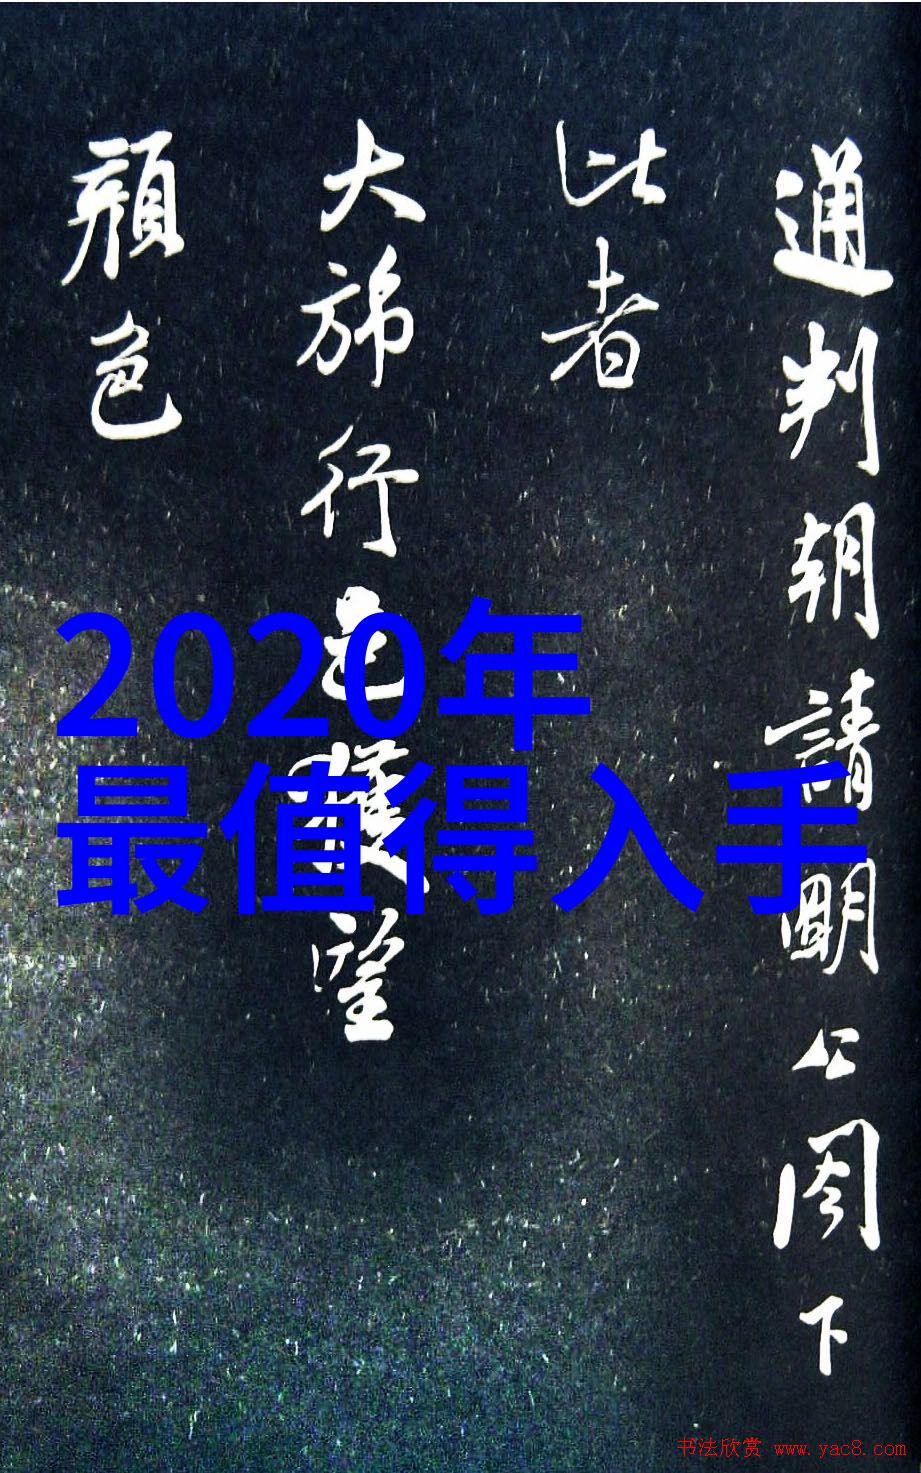 2020年
最值得入手
通判朝請明公閤下
比者
大旆行望
顏色
书法欣赏 www.yac8.com